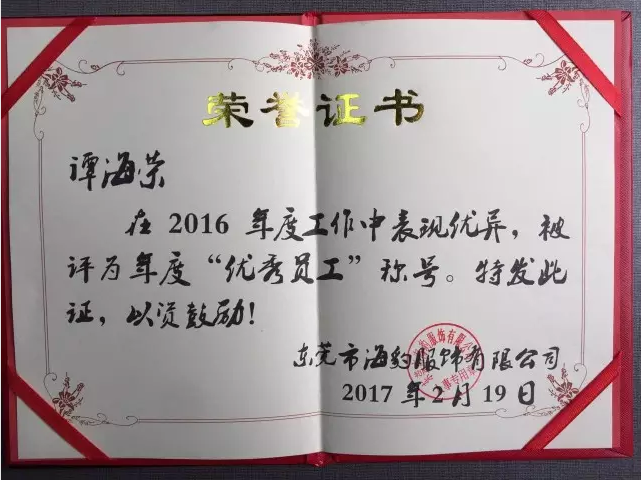 荣誉证书
谭海荣
在 2016 年度工作中表现优异，被
评为年度“优秀员工”称号。特发此
证，以资鼓励！
东莞市海豹服饰有限公司
2017 年 2 月 19 日